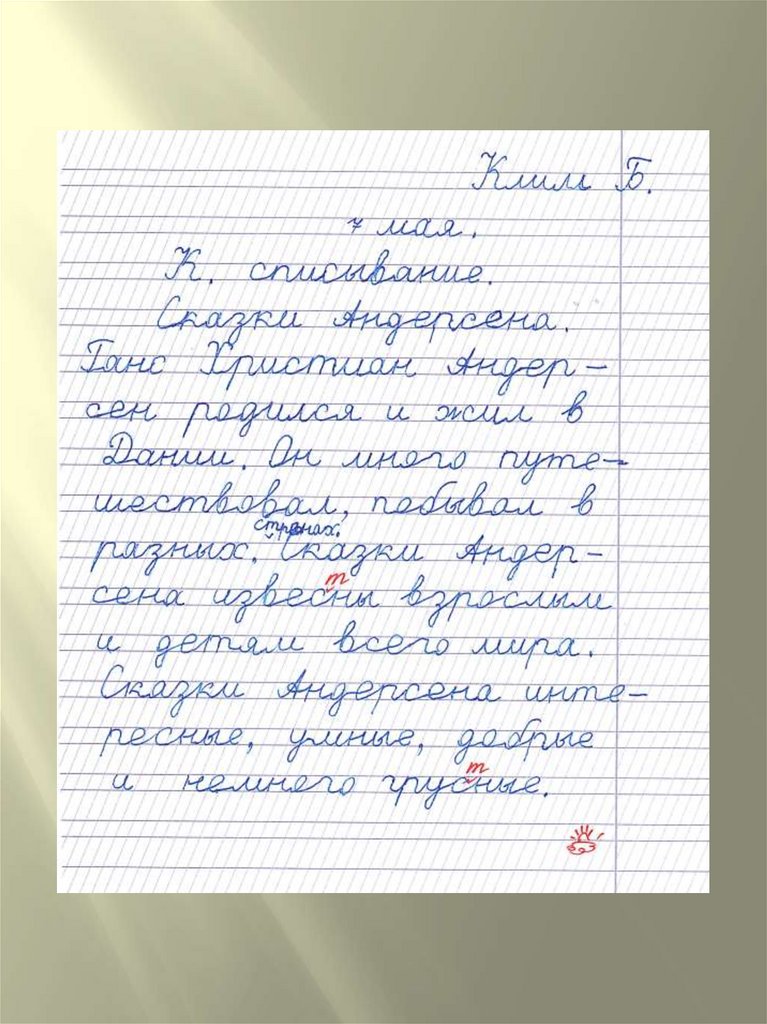 Клим Б.
7 мая.
К. списывание.
Сказки Андерсена.
Ганс Христиан Андер-
сен родился и жил в
Дании. Он много путе-
шествовал, побывал в
странах.
разных. Сказки Андер-
т
сена извесны взрослым
и детям всего мира.
Сказки Андерсена инте-
ресные, умные, добрые
т
и немного грусные.